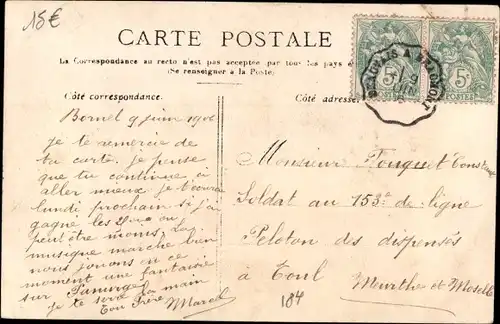 15€
CARTE POSTALE
La Correspondance au recto n'est pas acceptée par tous les pays
(Se renseigner à la Poste)
Côté correspondance.
Côté adresse.
5c
5c
POSTES
Bornel 9 juin 1906
je te remercie de
ta carte. je pense
que tu continue a
aller mieux. je t'
lundi prochain si j'ai
gagné les
peut être moins. La
musique marche bien
nous jouons en ce
moment une fantaisie
sur Panurge
je te serre la main
ton frère Marcel
Monsieur Fouquet Constant
Soldat au 153e de ligne
Peloton des dispensés
à Toul
Meurthe et Moselle
184